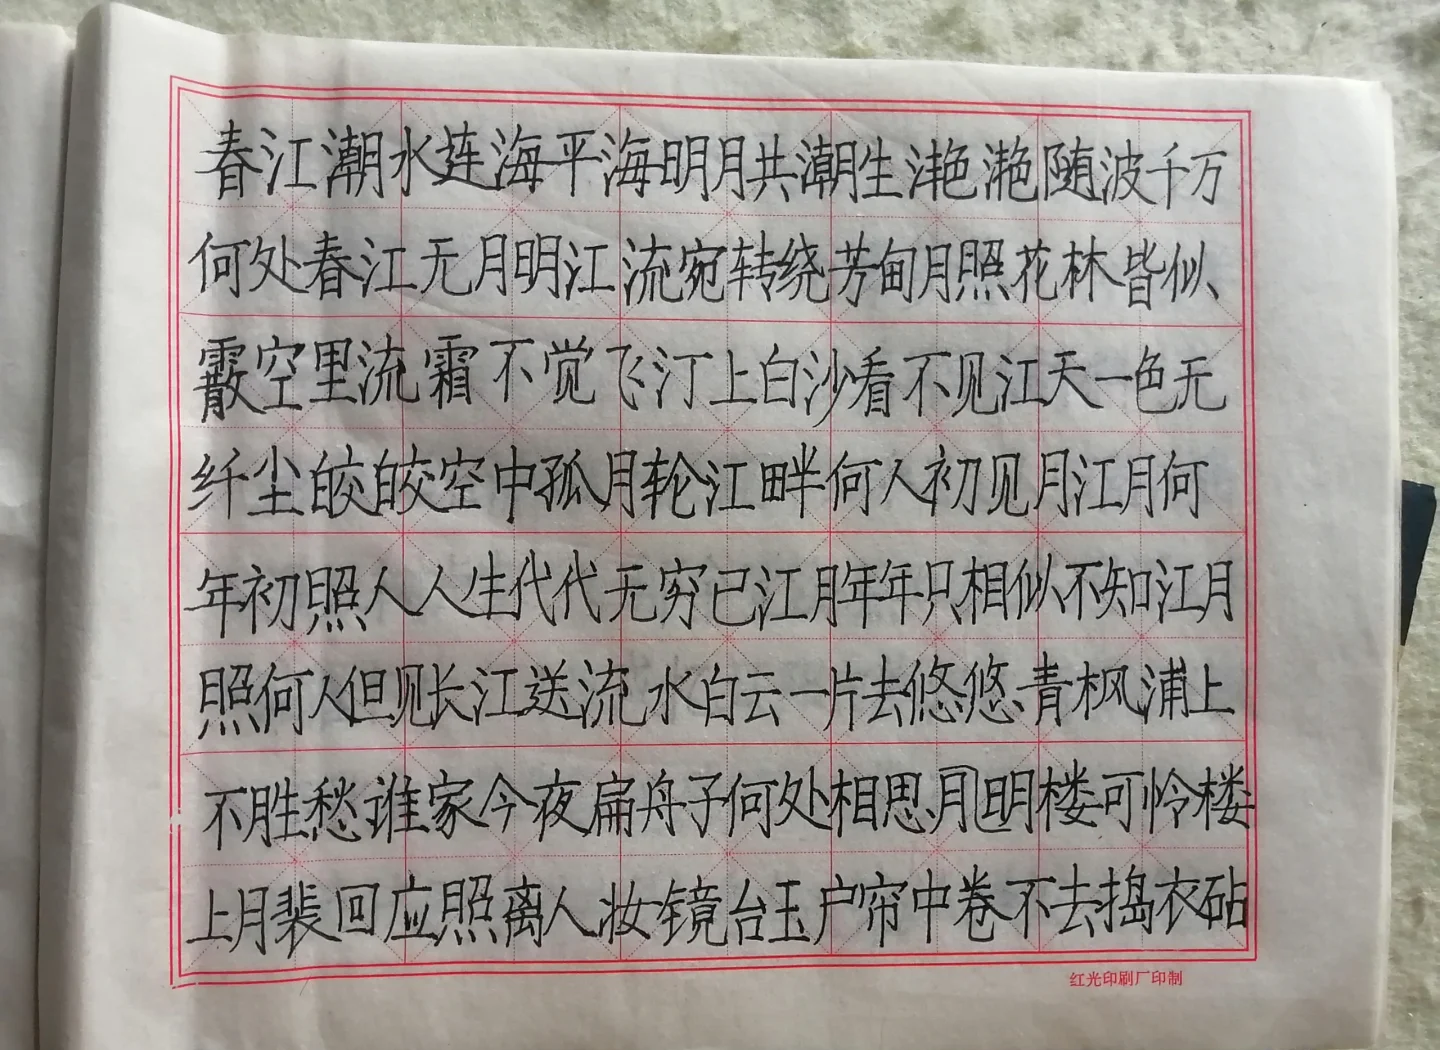 春江潮水连海平海明月共潮生滟滟随波千万
何处春江无月明江流宛转绕芳甸月照花林皆似
霰空里流霜不觉飞汀上白沙看不见江天一色无
纤尘皎皎空中孤月轮江畔何人初见月江月何
年初照人人生代代无穷已江月年年只相似不知江月
照何人但见长江送流水白云一片去悠悠青枫浦上
不胜愁谁家今夜扁舟子何处相思月明楼可怜楼
上月裴回应照离人妆镜台玉户帘中卷不去捣衣砧
红光印刷厂印制